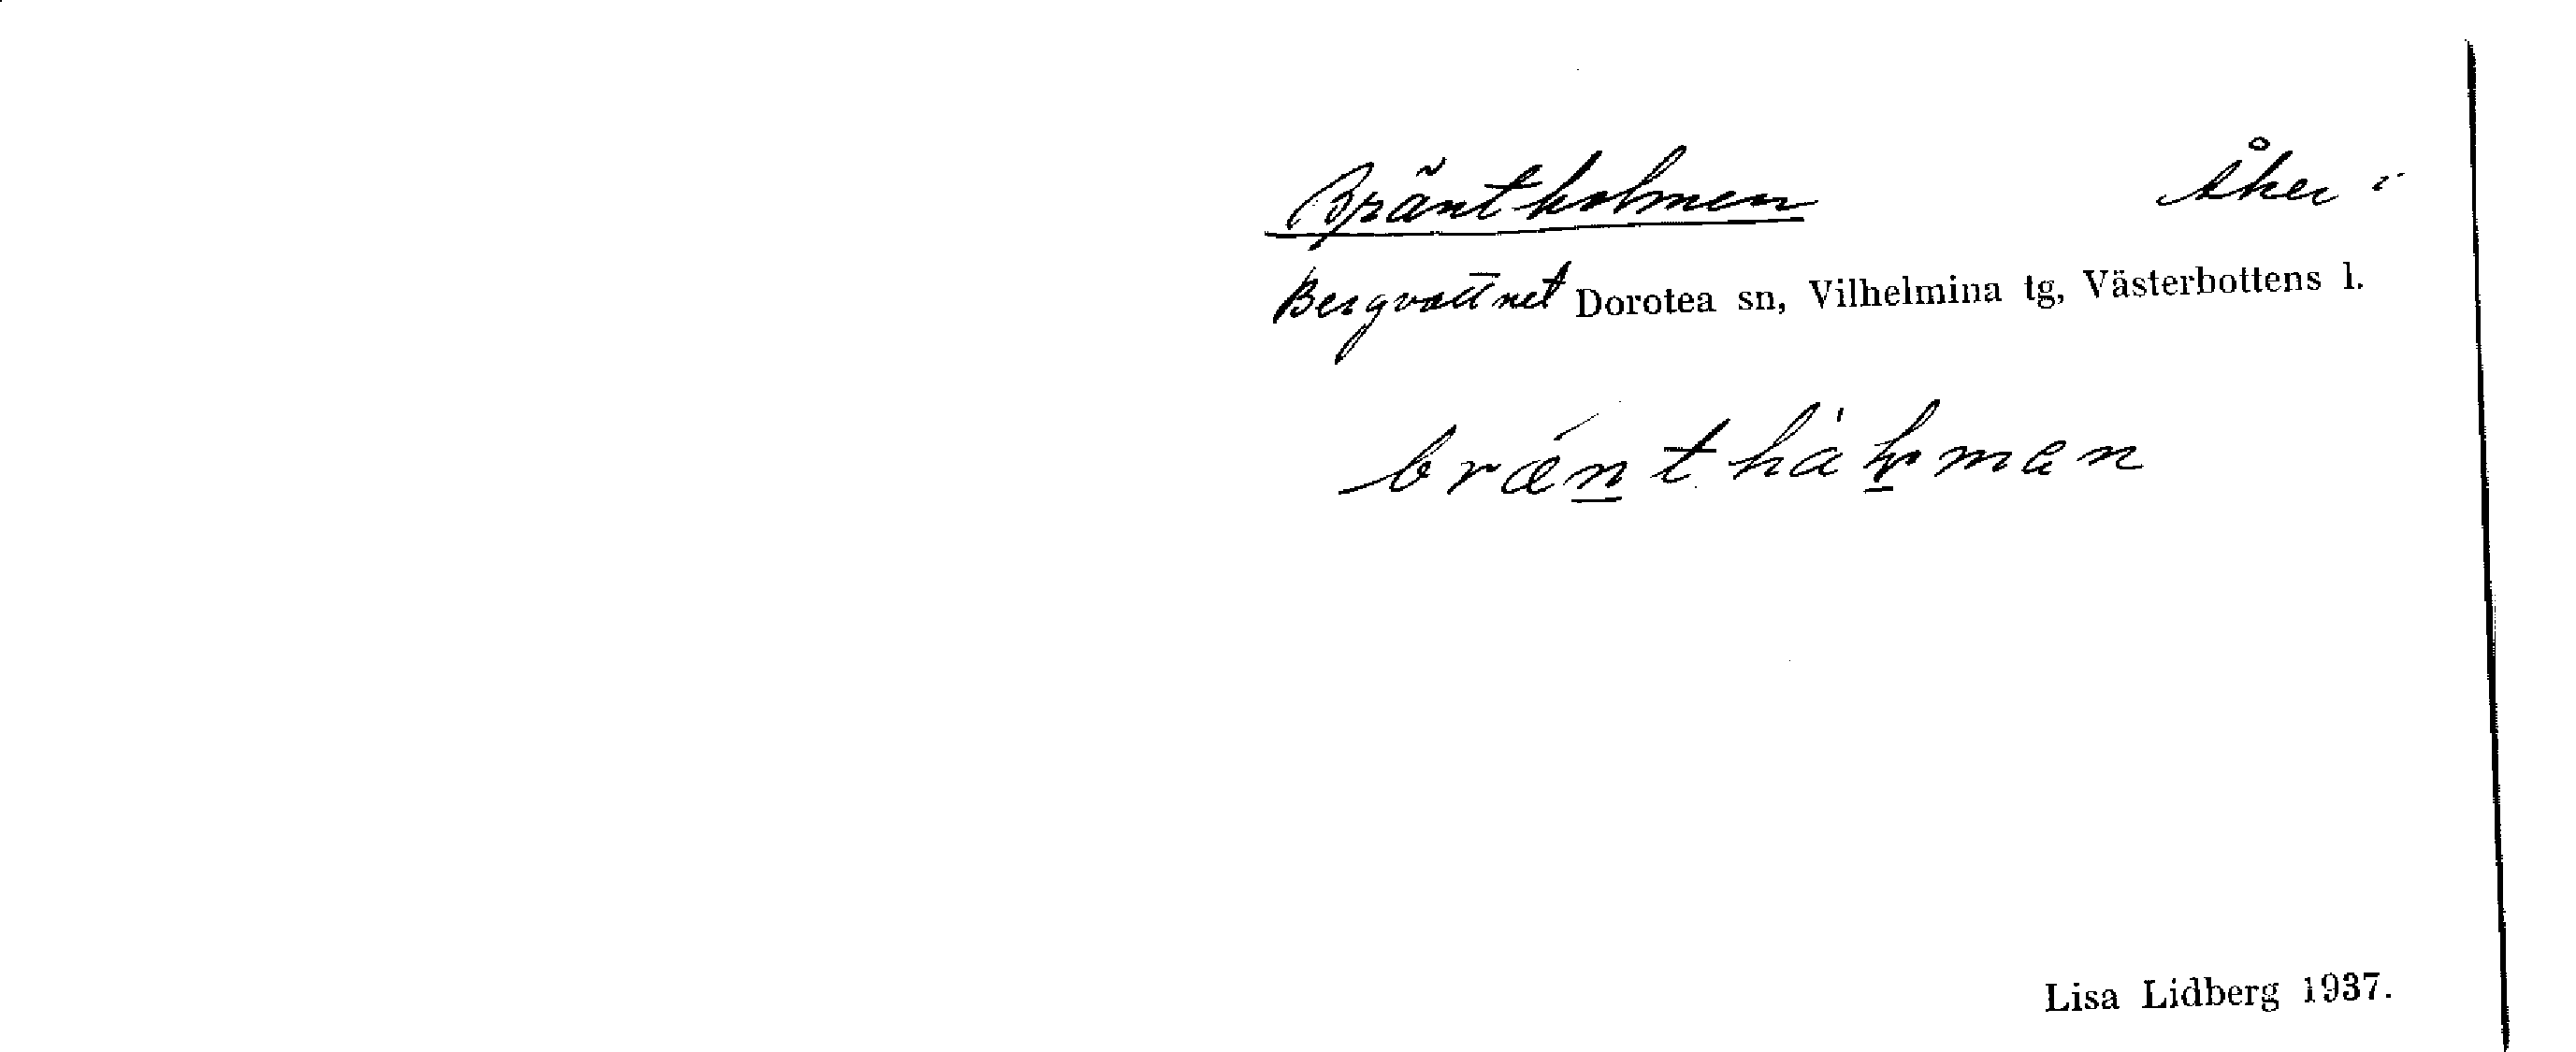 Bräntholmen åker i
Bergvattnet Dorotea sn, Vilhelmina tg, Västerbottens l.
Lisa Lidberg 1937.